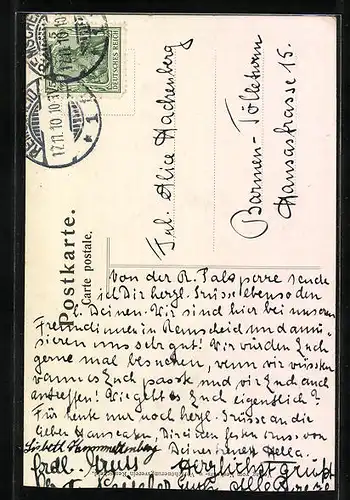 DEUTSCHES REICH
REMSCHEID
17.11.10.10
* 1
Postkarte.
Carte postale.
Frl. Alice Hackenberg
Barmen-Tölleturm
Hansastrasse 15.
Von der R. Talsperre sende
ich Dir herzl. Grüsse ebenso den
l. Deinen. Wir sind hier bei unseren
Freundinnen in Remscheid und amü-
sieren uns sehr gut! Wir würden Euch
gerne mal besuchen, wenn wir wüssten
wann es Euch passt und wir Euch auch
antreffen! Wie geht es Euch eigentlich?
Für heute nur noch herzl. Grüsse an die
lieben Hanseaten, Dir einen festen Kuss von
Deiner treuen Hella.
Lisbett
frdl. Gruß Herzlichst grüßt